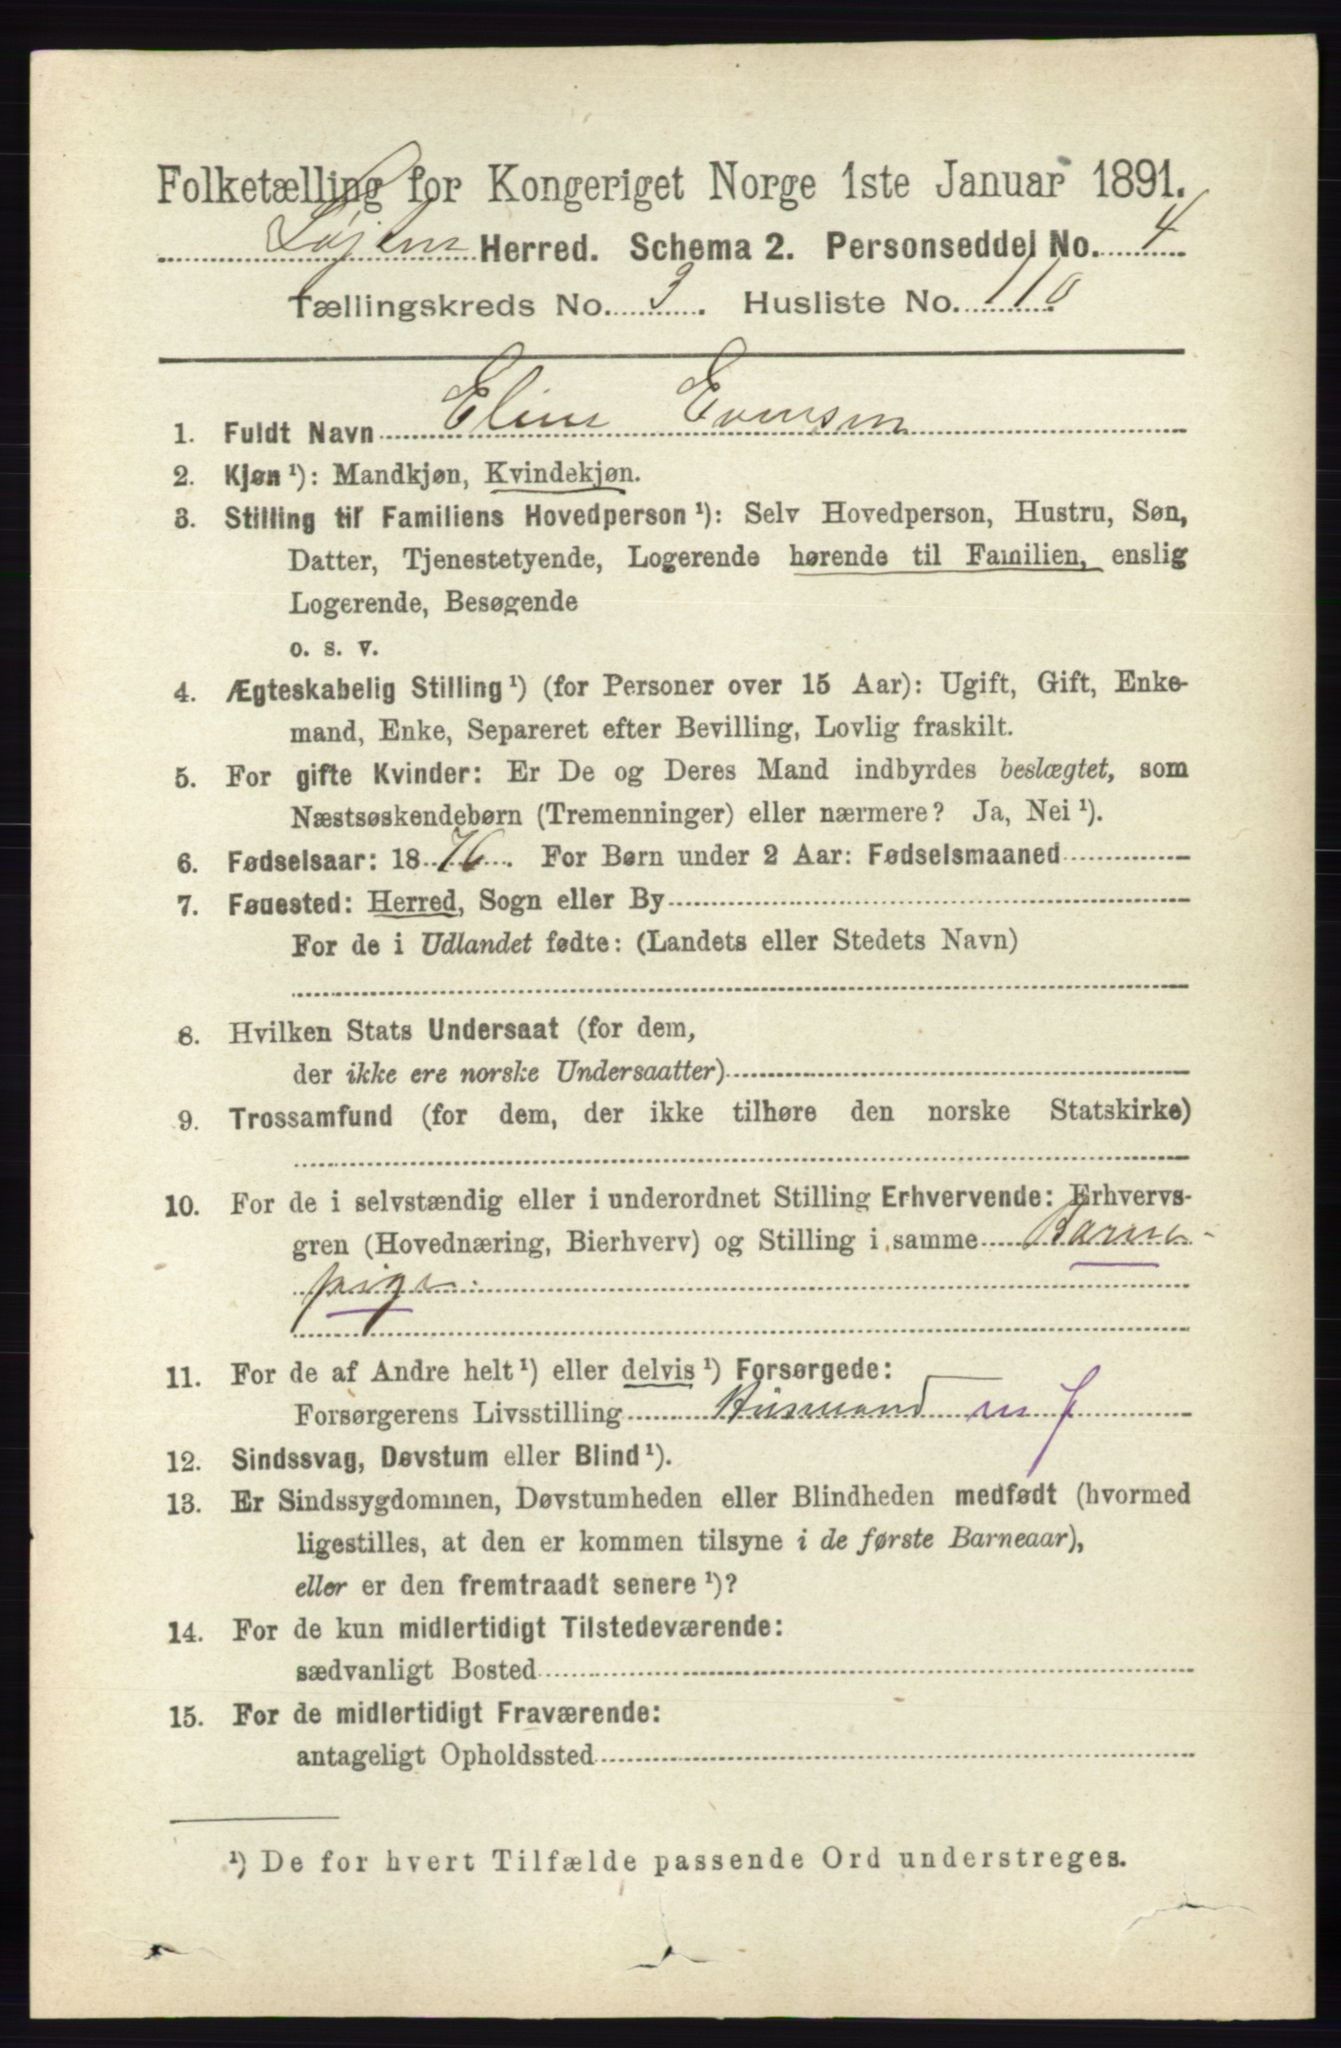 Folketælling for Kongeriget Norge 1ste Januar 1891.
Løjten Herred. Schema 2. Personseddel No. 4
Tællingskreds No. 3. Husliste No. 110
1. Fuldt Navn Eline Evensen
2. Kjøn ¹): Mandkjøn, Kvindekjøn.
3. Stilling til Familiens Hovedperson ¹): Selv Hovedperson, Hustru, Søn,
Datter, Tjenestetyende, Logerende hørende til Familien, enslig
Logerende, Besøgende
o. s. v.
4. Ægteskabelig Stilling ¹) (for Personer over 15 Aar): Ugift, Gift, Enke-
mand, Enke, Separeret efter Bevilling, Lovlig fraskilt.
5. For gifte Kvinder: Er De og Deres Mand indbyrdes beslægtet, som
Næstsøskendebørn (Tremenninger) eller nærmere? Ja, Nei ¹).
6. Fødselsaar: 1876. For Børn under 2 Aar: Fødselsmaaned
7. Føuested: Herred, Sogn eller By
For de i Udlandet fødte: (Landets eller Stedets Navn)
8. Hvilken Stats Undersaat (for dem,
der ikke ere norske Undersaatter)
9. Trossamfund (for dem, der ikke tilhøre den norske Statskirke)
10. For de i selvstændig eller i underordnet Stilling Erhvervende: Erhvervs-
gren (Hovednæring, Bierhverv) og Stilling i samme Barne-
pige.
11. For de af Andre helt ¹) eller delvis ¹) Forsørgede:
Forsørgerens Livsstilling Husmand m j
12. Sindssvag, Døvstum eller Blind ¹).
13. Er Sindssygdommen, Døvstumheden eller Blindheden medfødt (hvormed
ligestilles, at den er kommen tilsyne i de første Barneaar),
eller er den fremtraadt senere ¹)?
14. For de kun midlertidigt Tilstedeværende:
sædvanligt Bosted
15. For de midlertidigt Fraværende:
antageligt Opholdssted
¹) De for hvert Tilfælde passende Ord understreges.